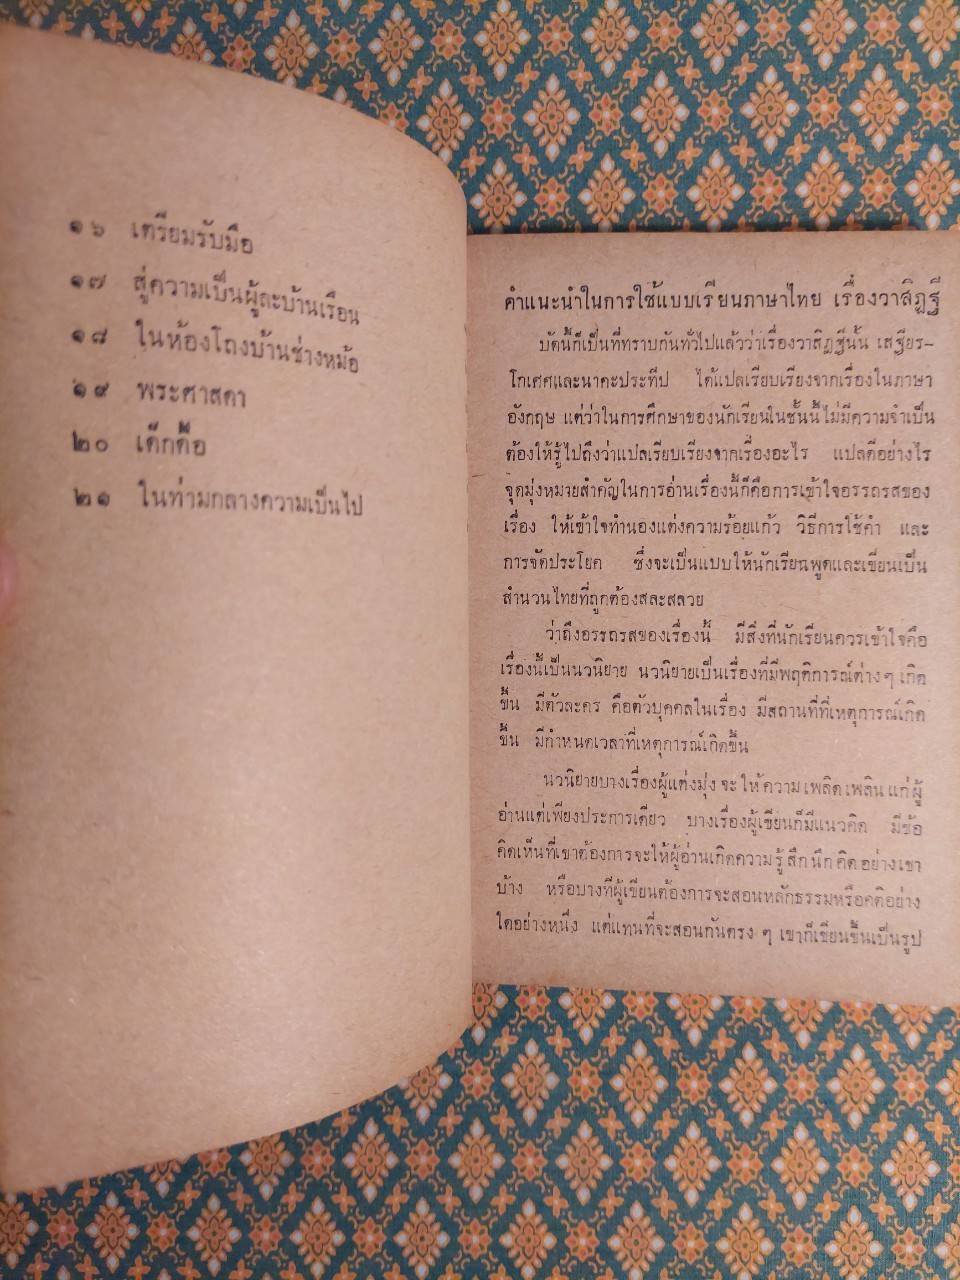 ๑๖ เตรียมรับมือ
๑๗ สู่ความเป็นผู้ละบ้านเรือน
๑๘ ในห้องโถงบ้านช่างหม้อ
๑๙ พระศาสดา
๒๐ เด็กดื้อ
๒๑ ในท่ามกลางความเป็นไป
คำแนะนำในการใช้แบบเรียนภาษาไทย เรื่องวาสิฏฐี
บัดนี้ก็เป็นที่ทราบกันทั่วไปแล้วว่าเรื่องวาสิฏฐีนั้น เสฐียร-
โกเศศและนาคะประทีป ได้แปลเรียบเรียงจากเรื่องในภาษา
อังกฤษ แต่ว่าในการศึกษาของนักเรียนในชั้นนี้ไม่มีความจำเป็น
ต้องให้รู้ไปถึงว่าแปลเรียบเรียงจากเรื่องอะไร แปลดีอย่างไร
จุดมุ่งหมายสำคัญในการอ่านเรื่องนี้ก็คือการเข้าใจอรรถรสของ
เรื่อง ให้เข้าใจทำนองแต่งความร้อยแก้ว วิธีการใช้คำ และ
การจัดประโยค ซึ่งจะเป็นแบบให้นักเรียนพูดและเขียนเป็น
สำนวนไทยที่ถูกต้องสละสลวย
ว่าถึงอรรถรสของเรื่องนี้ มีสิ่งที่นักเรียนควรเข้าใจคือ
เรื่องนี้เป็นนวนิยาย นวนิยายเป็นเรื่องที่มีพฤติการณ์ต่าง ๆ เกิด
ขึ้น มีตัวละคร คือตัวบุคคลในเรื่อง มีสถานที่ที่เหตุการณ์เกิด
ขึ้น มีกำหนดเวลาที่เหตุการณ์เกิดขึ้น
นวนิยายบางเรื่องผู้แต่งมุ่งจะให้ความเพลิดเพลินแก่ผู้
อ่านแต่เพียงประการเดียว บางเรื่องผู้เขียนก็มีแนวคิด มีข้อ
คิดเห็นที่เขาต้องการจะให้ผู้อ่านเกิดความรู้สึกนึกคิดอย่างเขา
บ้าง หรือบางทีผู้เขียนต้องการจะสอนหลักธรรมหรือคติอย่าง
ใดอย่างหนึ่ง แต่แทนที่จะสอนกันตรง ๆ เขาก็เขียนขึ้นเป็นรูป